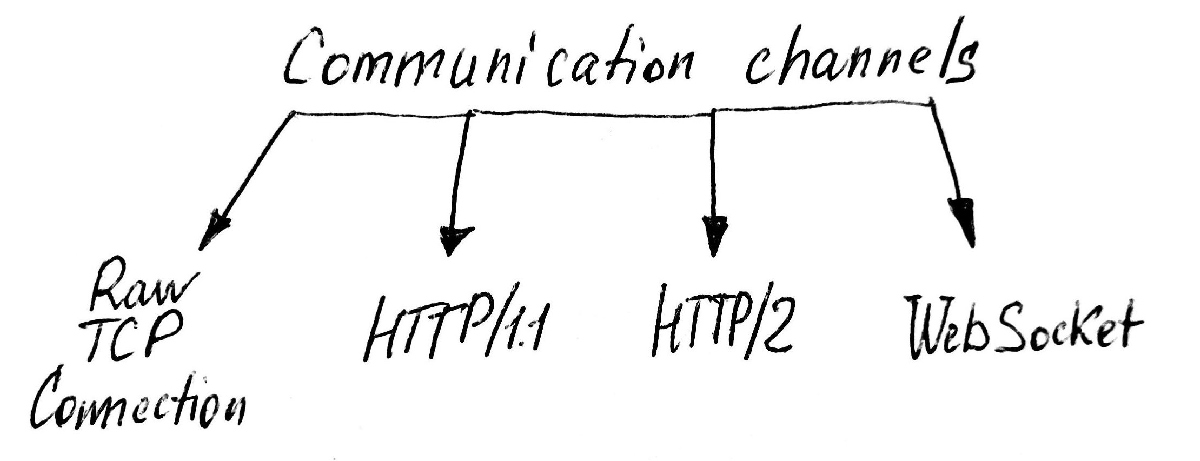 Communication channels
Raw
TCP
Connection
HTTP/1.1
HTTP/2
WebSocket